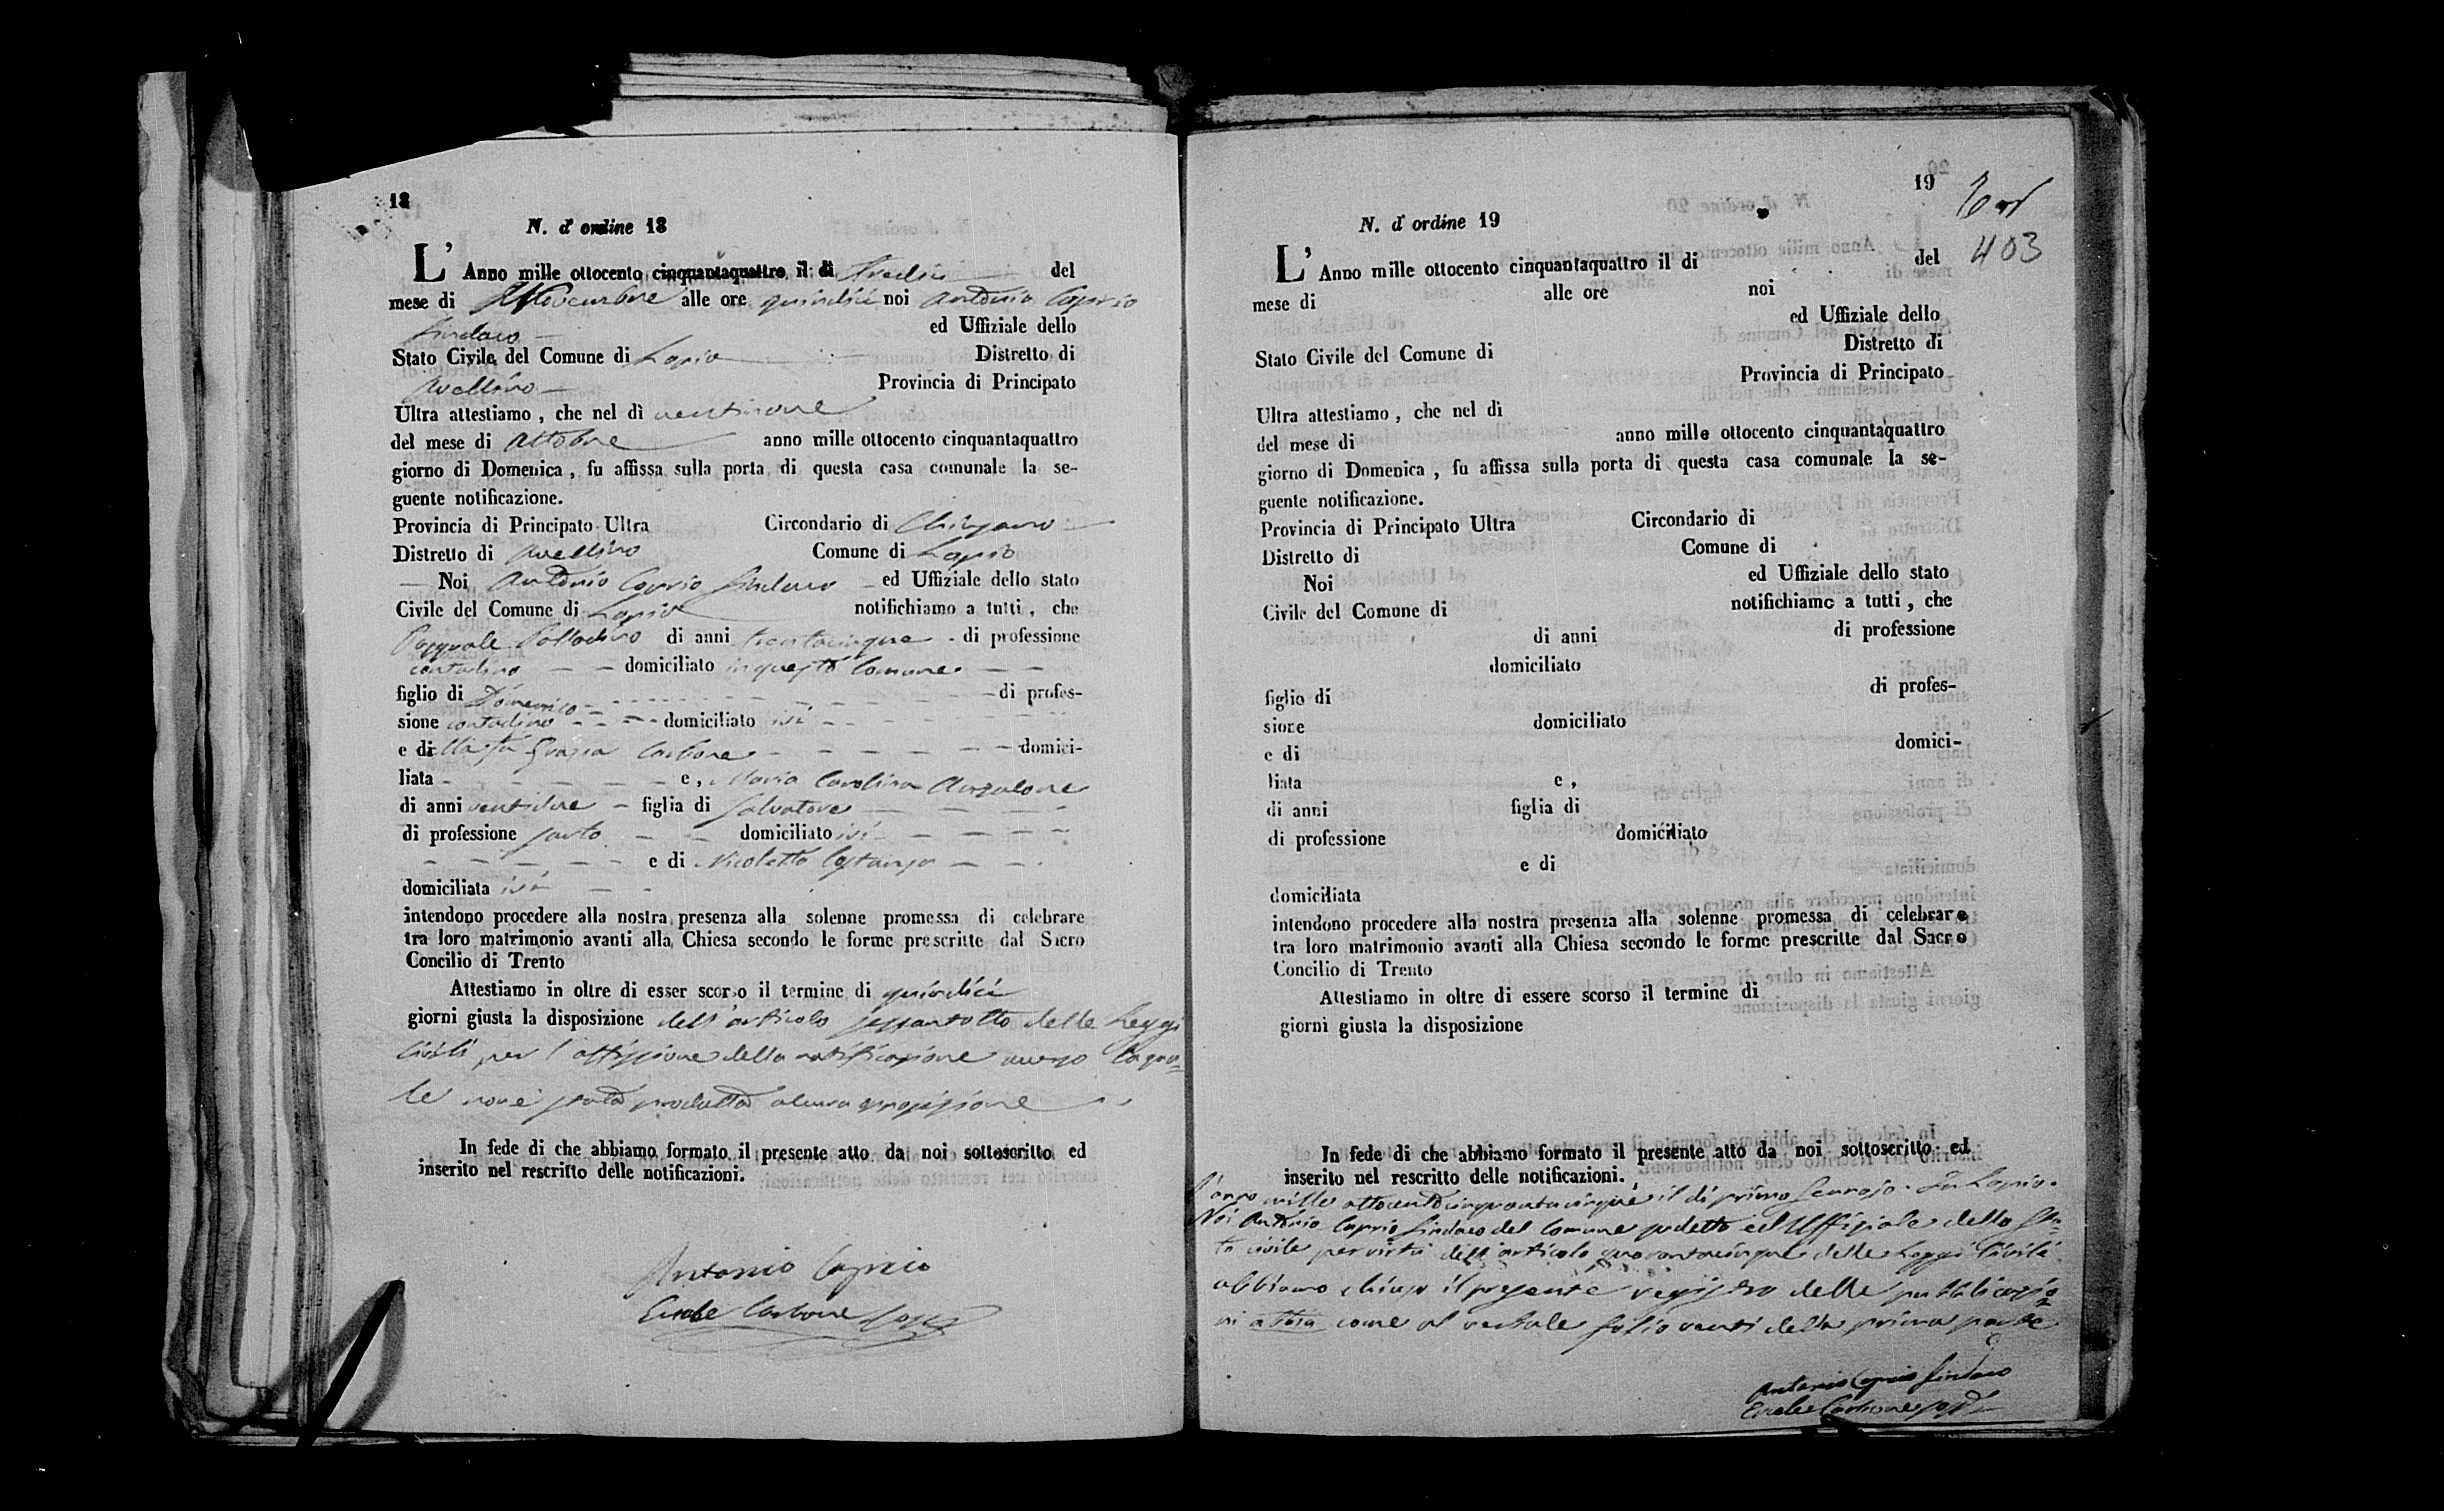 18
N. d' ordine 18
L' Anno mille ottocento cinquantaquattro il dì tredici del
mese di Novembre alle ore quindici noi Antonio Caprio
Sindaco ed Uffiziale dello
Stato Civile del Comune di Lapio Distretto di
Avellino Provincia di Principato
Ultra attestiamo, che nel dì ventinove
del mese di Ottobre anno mille ottocento cinquantaquattro
giorno di Domenica, fu affissa sulla porta di questa casa comunale la se-
guente notificazione.
Provincia di Principato Ultra Circondario di Chiusano
Distretto di Avellino Comune di Lapio
Noi Antonio Caprio Sindaco ed Uffiziale dello stato
Civile del Comune di Lapio notifichiamo a tutti, che
Pasquale Palladino di anni trentacinque di professione
contadino domiciliato in questo Comune
figlio di Domenico di profes-
sione contadino domiciliato ivi
e di Grazia Carbone domici-
liata e, Maria Carolina Anzalone
di anni ventidue figlia di Salvatore
di professione sarto domiciliato ivi
e di Nicoletta Costanzo
domiciliata ivi
intendono procedere alla nostra presenza alla solenne promessa di celebrare
tra loro matrimonio avanti alla Chiesa secondo le forme prescritte dal Sacro
Concilio di Trento
Attestiamo in oltre di esser scorso il termine di quindici
giorni giusta la disposizione dell'articolo sessantotto delle Leggi
Civili per l'affissione della notificazione avverso la qua=
le non è stata prodotta alcuna opposizione
In fede di che abbiamo formato il presente atto da noi sottoscritto ed
inserito nel rescritto delle notificazioni.
Antonio Caprio
Carbone
19
403
N. d' ordine 19
L' Anno mille ottocento cinquantaquattro il di del
mese di alle ore noi
ed Uffiziale dello
Stato Civile del Comune di Distretto di
Provincia di Principato
Ultra attestiamo, che nel dì
del mese di anno mille ottocento cinquantaquattro
giorno di Domenica, fu affissa sulla porta di questa casa comunale la se-
guente notificazione.
Provincia di Principato Ultra Circondario di
Distretto di Comune di
Noi ed Uffiziale dello stato
Civile del Comune di notifichiamo a tutti, che
di anni di professione
domiciliato
figlio di di profes-
sione domiciliato
e di domici-
liata e,
di anni figlia di
di professione domiciliato
e di
domiciliata
intendono procedere alla nostra presenza alla solenne promessa di celebrare
tra loro matrimonio avanti alla Chiesa secondo le forme prescritte dal Sacro
Concilio di Trento
Attestiamo in oltre di essere scorso il termine di
giorni giusta la disposizione
In fede di che abbiamo formato il presente atto da noi sottoscritto ed
inserito nel rescritto delle notificazioni.
L'anno mille ottocento cinquantacinque il dì primo Gennajo in Lapio.
Noi Antonio Caprio Sindaco del Comune sudetto ed Uffiziale dello Sta=
to civile per virtù dell'articolo quarantacinque delle Leggi Civili
abbiamo chiuso il presente registro delle pubblicazio=
ni come al verbale folio venti della prima parte
Antonio Caprio Sindaco
Carbone